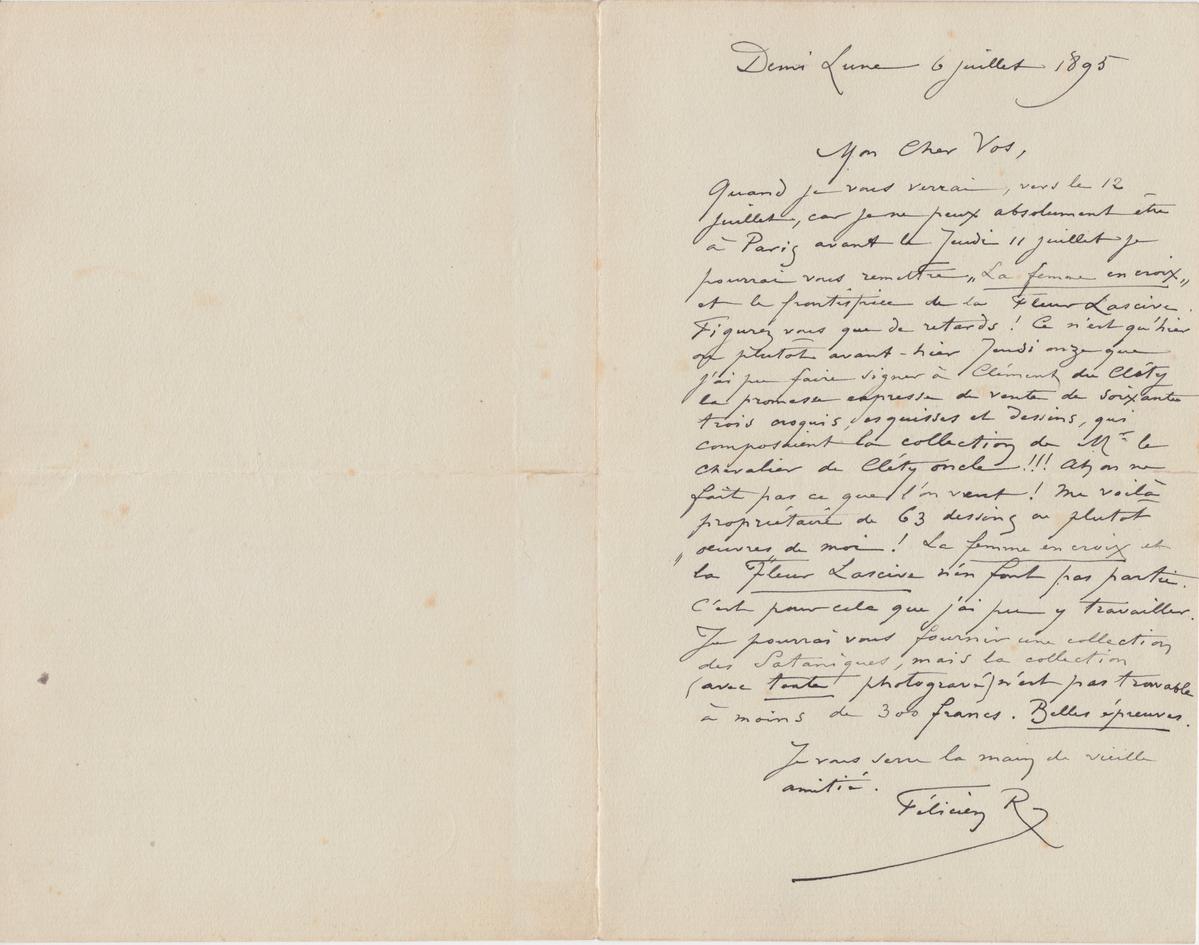 Demi Lune 6 juillet 1895
Mon Cher Vos,
Quand je vous verrai, vers le 12
juillet, car je ne peux absolument être
à Paris avant le Jeudi 11 juillet je
pourrai vous remettre „La femme en croix„
et le frontispice de la Fleur Lascive.
Figurez vous que de retards ! Ce n'est qu'hier
ou plutôt avant-hier Jeudi onze que
j'ai pu faire signer à Clément du Cléty
la promesse expresse de vente de soixante
trois croquis, esquisses et dessins, qui
composaient la collection de Mr le
chevalier de Cléty oncle !!! Ah on ne
fait pas ce que l'on veut ! me voilà
propriétaire de 63 dessins ou plutôt
„oeuvres de moi„ ! La femme en croix et
la Fleur Lascive n'en font pas partie.
C'est pour cela que j'ai pu y travailler.
Je pourrai vous fournir une collection
des Sataniques, mais la collection
(avec texte photogravé) n'est pas trouvable
à moins de 300 francs. Belles épreuves.
Je vous serre la main de vieille
amitié.
Félicien R